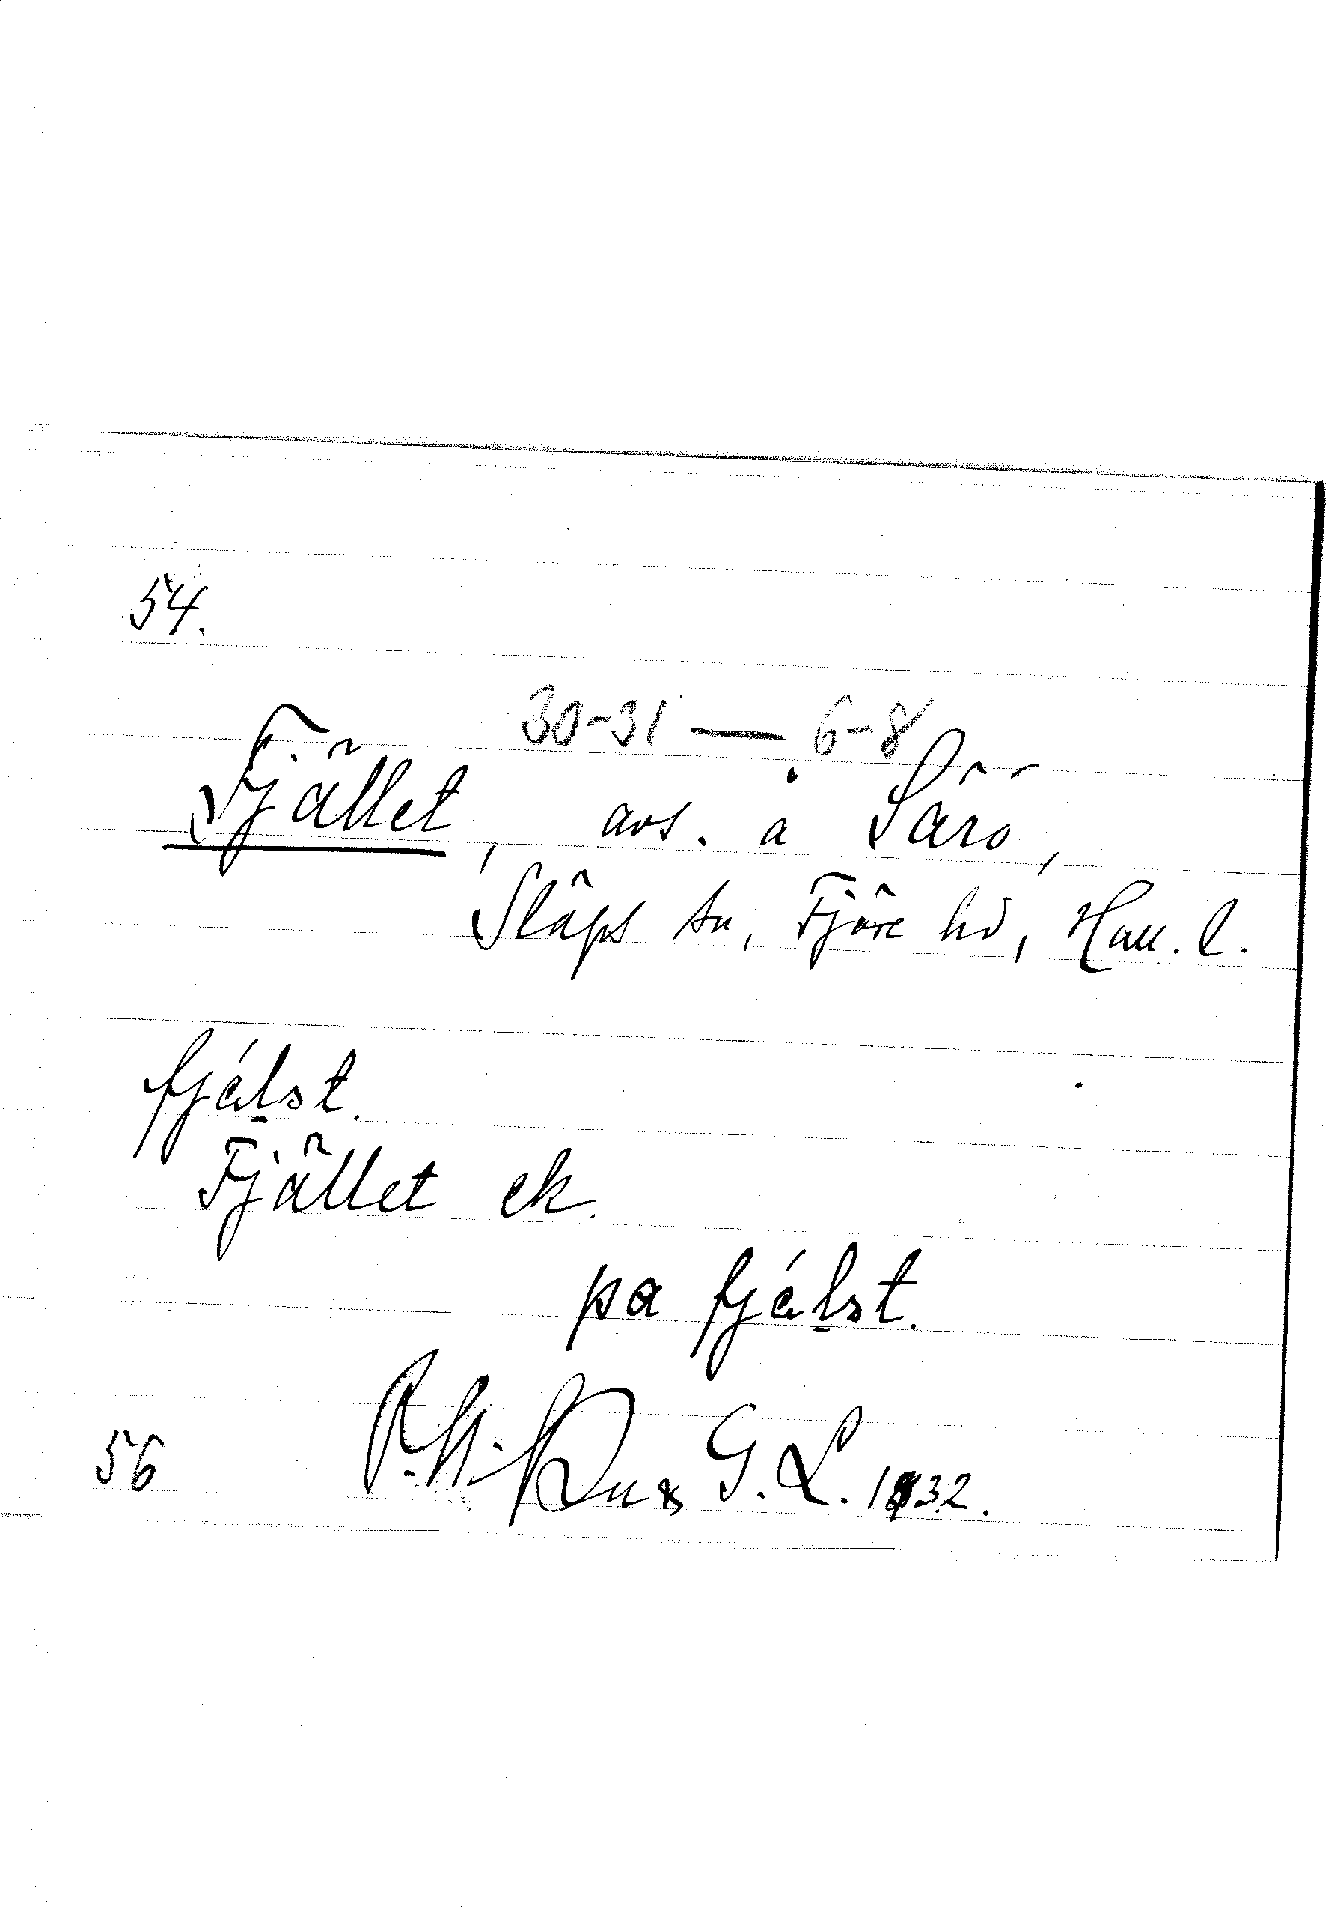 54.
30-31 — 6-8
Fjället, avs. å Särö,
Släps sn, Fjäre hd, Hall. l.
fjálst.
Fjället ek.
pa fjálst.
56 G. L. 1932.